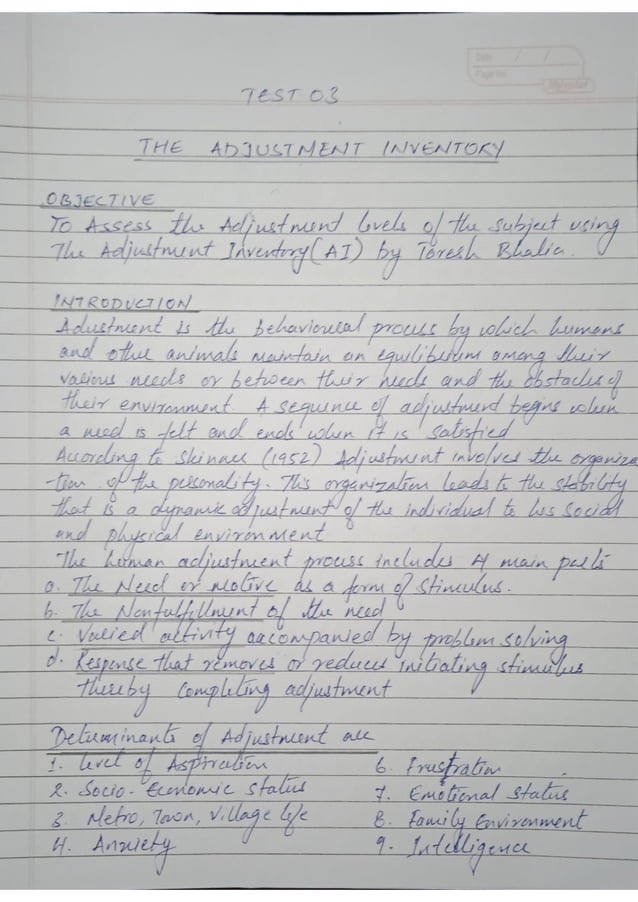 Date / /
Page No.
TEST 03
THE ADJUSTMENT INVENTORY
OBJECTIVE
To Assess the Adjustment levels of the subject using
The Adjustment Inventory (AI) by Toresh Bhalia.
INTRODUCTION
Adustment is the behavioural process by which humans
and other animals maintain an equilibrium among their
various needs or between their needs and the obstacles of
their environment. A sequence of adjustment begins when
a need is felt and ends when it is satisfied
According to Skinner (1952) Adjustment involves the organiza
tion of the personality. This organization leads to the stability
that is a dynamic adjustment of the individual to his social
and physical environment
The human adjustment process includes 4 main parts
a. The Need or motive as a form of stimulus.
b. The Nonfulfillment of the need
c. Varied activity accompanied by problem solving
d. Response that removes or reduces initiating stimulus
thereby completing adjustment
Determinants of Adjustment are
1. level of Aspiration
2. Socio-Economic status
3. Metro, Town, Village life
4. Anxiety
6. Frustration
7. Emotional status
8. Family Environment
9. Intelligence